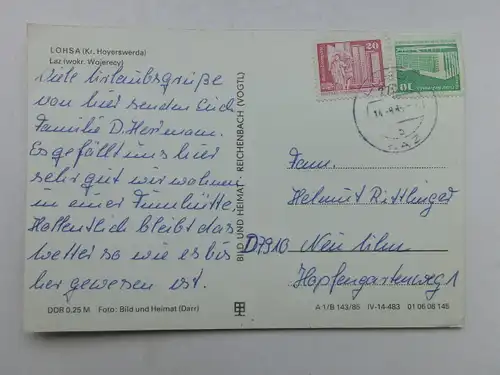 LOHSA (Kr. Hoyerswerda)
Łaz (wokr. Wojerecy)
Viele Urlaubsgrüße
von hier senden Euch
Familie D. Herrmann.
Es gefällt uns hier
sehr gut wir wohnen
in einer Finnhütte.
Hoffentlich bleibt das
Wetter so wie es bis
her gewesen ist.
DDR 0,25 M Foto: Bild und Heimat (Darr)
BILD UND HEIMAT · REICHENBACH (VOGTL)
20
10
ŁAZ
Fam.
Helmut Rittlinger
D7910 Neu Ulm
Hopfengartenweg 1
A 1/B 143/85 IV-14-483 01 06 08 145